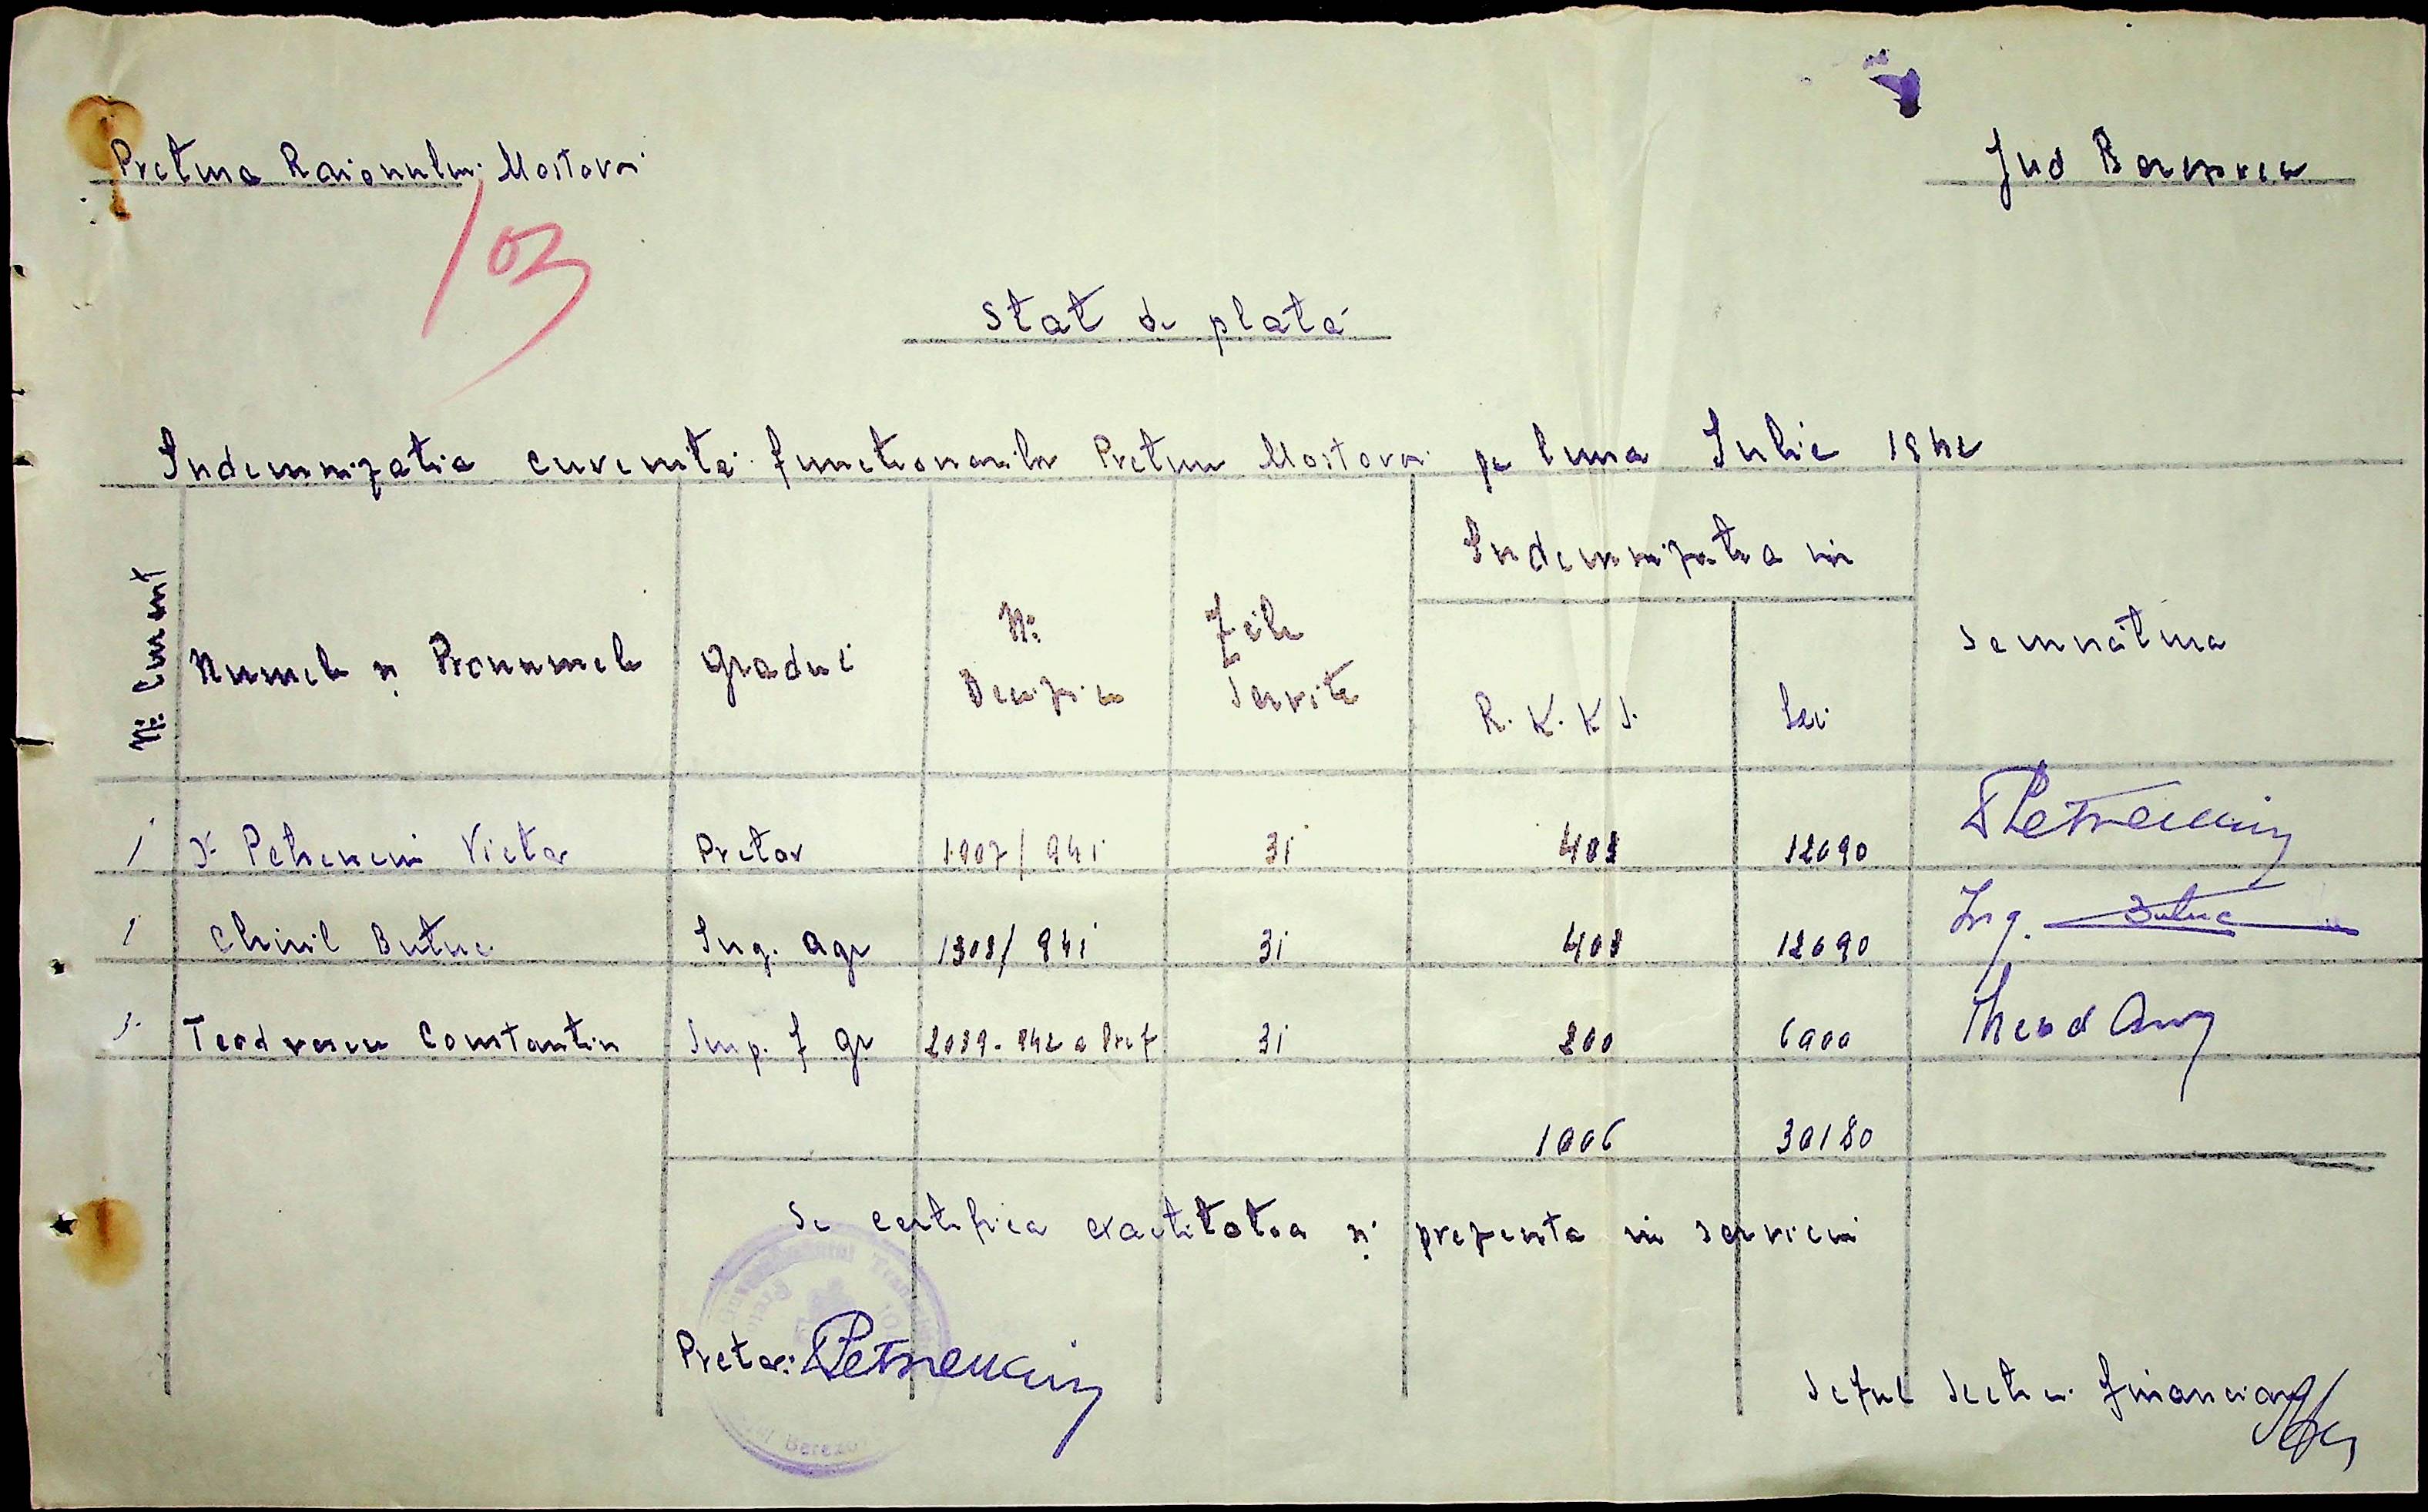 Pretura Raionului Mostovoi
Jud Berezovca
103
Stat de plată
Indemnizatia cuvenită functionarilor Preturii Mostovoi pe luna Iulie 1942
Nr. Curent
Numele și Pronumele
Gradul
Nr. Deciziei
Zile Servite
Indemnizatia in
R.K.K.S.
Lei
Semnătura
1 Dr Petrenciu Victor Pretor 1007/941 31 403 12090
Chiril Butuc Ing. agr 1308/941 31 403 12090 Ing. Butuc
3 Teodorescu Constantin Imp. f gr 2039-942 a Pref 31 200 6000
1006 30180
Se certifica exactitatea și prezenta in serviciu
Pretor:
Seful Sectiei financiare